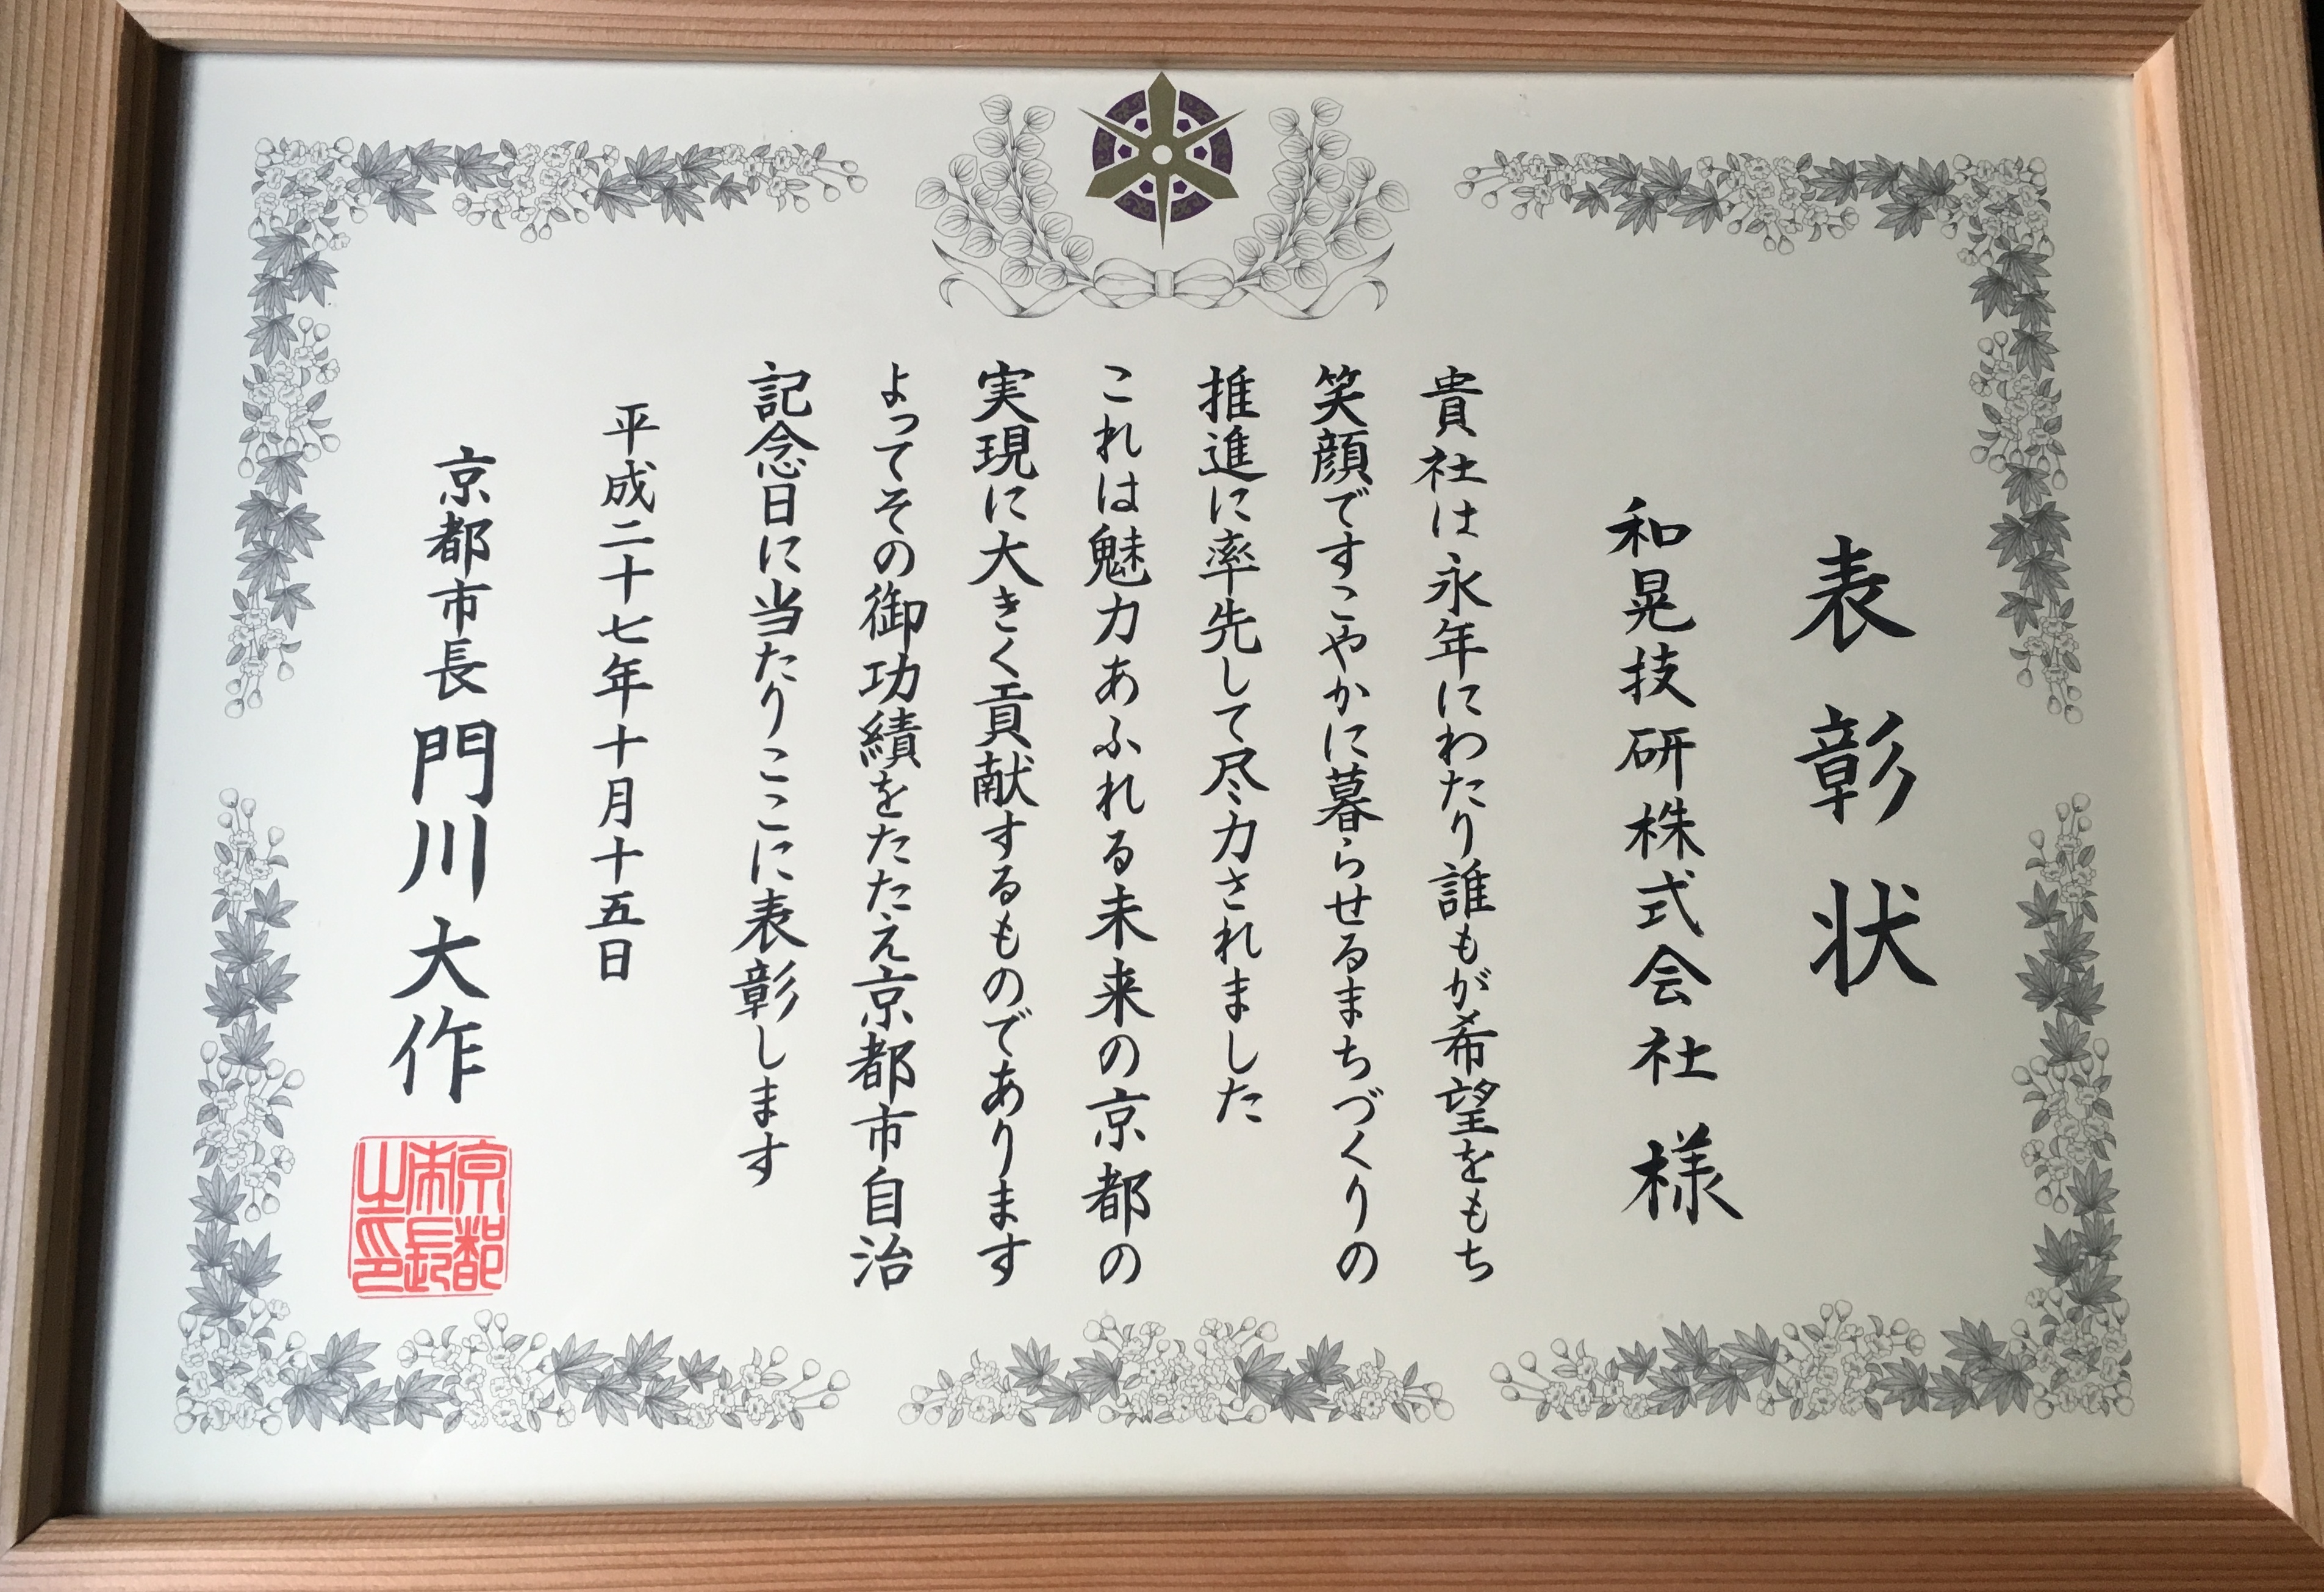 表彰状
和晃技研株式会社 様
貴社は永年にわたり誰もが希望をもち
笑顔ですこやかに暮らせるまちづくりの
推進に率先して尽力されました
これは魅力あふれる未来の京都の
実現に大きく貢献するものであります
よってその御功績をたたえ京都市自治
記念日に当たりここに表彰します
平成二十七年十月十五日
京都市長 門川大作
京都市長之印